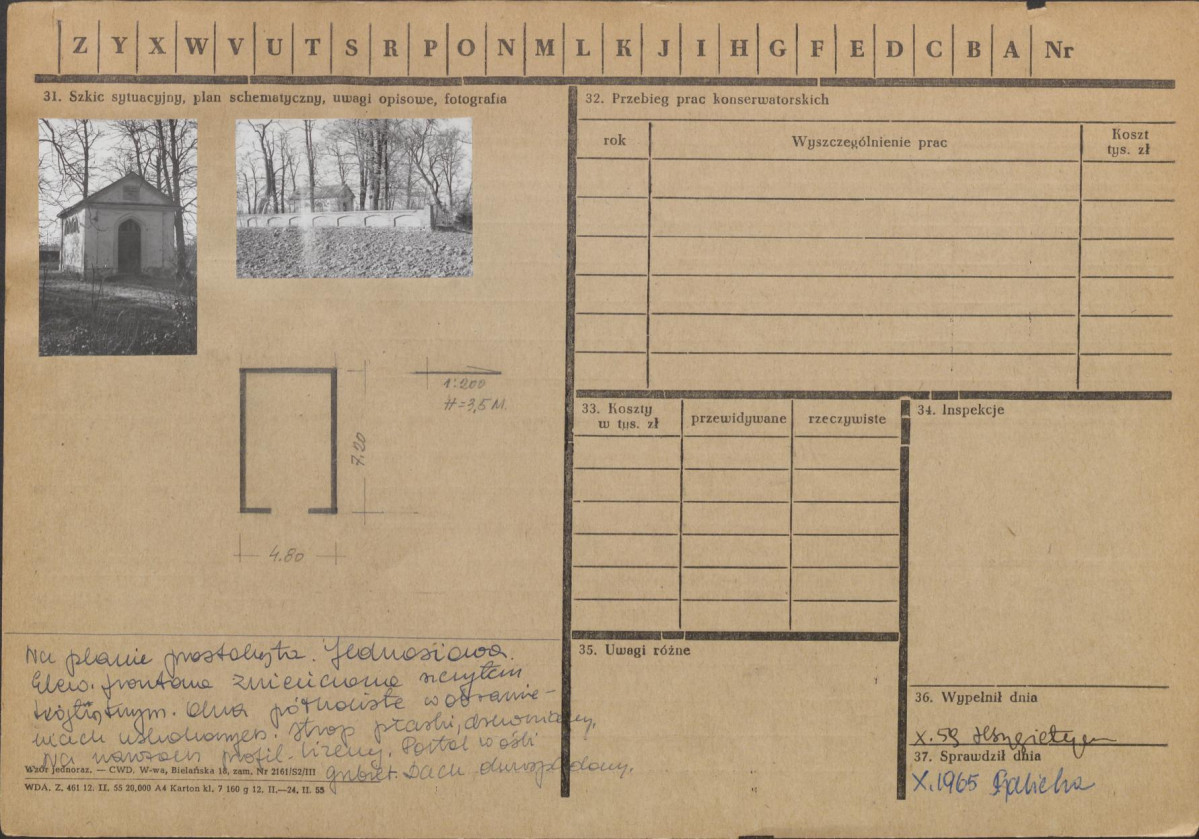 Z Y X W V U T S R P O N M L K J I H G F E D C B A Nr
31. Szkic sytuacyjny, plan schematyczny, uwagi opisowe, fotografia
1:200
H=3,5 M.
7.20
4.80
Na planie prostokąta. Jednosiowa.
Elew. frontowa zwieńczona szczytem
trójkątnym. Okna półkoliste w obramie-
niach uskokowych. Strop płaski, drewniany.
Na narożach profil. lizeny. Portal w ośli
grzbiet. Dach dwuspadowy.
Wzór jednoraz. — CWD. W-wa, Bielańska 18, zam. Nr 2161/S2/III
WDA. Z. 461 12. II. 55 20,000 A4 Karton kl. 7 160 g 12. II.—24. II. 55
32. Przebieg prac konserwatorskich
rok
Wyszczególnienie prac
Koszt
tys. zł
33. Koszty
w tys. zł
przewidywane
rzeczywiste
34. Inspekcje
35. Uwagi różne
36. Wypełnił dnia
X.59
37. Sprawdził dnia
X.1965